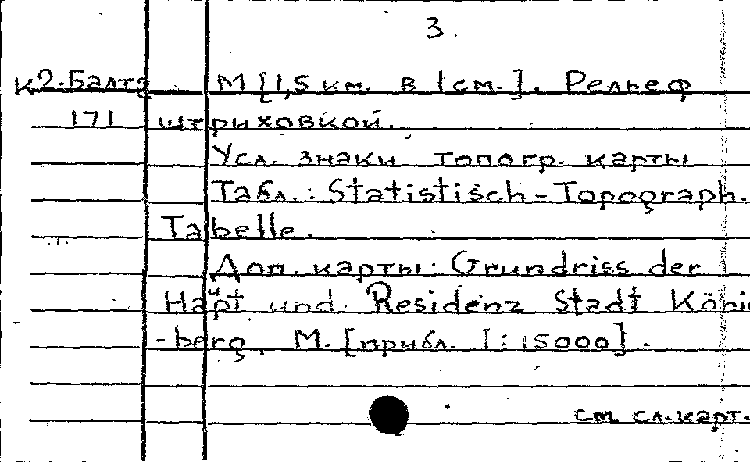 3.
К2-Балтэ М [1,5 км. в 1 см.]. Рельеф
171 штриховкой.
Усл. знаки топогр. карты
Табл.: Statistisch-Topograph.
Tabelle.
Доп. карты: Grundriss der
Haupt und Residenz Stadt Köni
-berg. М. [прибл. 1:15000].
см сл.карт.